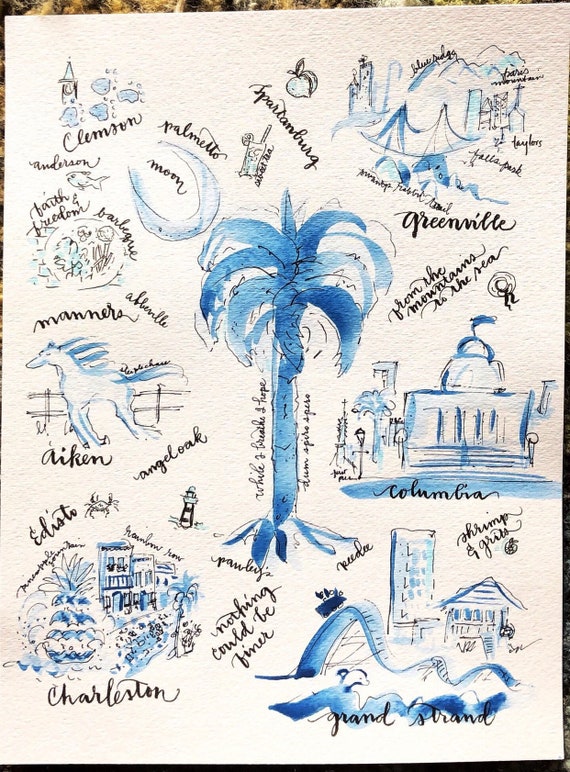 Clemson
anderson
palmetto
moon
Spartanburg
sweet tea
blue ridge
paris
mountain
taylors
falls park
swamp rabbit trail
greenville
faith &
freedom
barbeque
from the
mountains
to the sea
manners
abbeville
steeplechase
Aiken
angel oak
while I breathe I hope
dum spiro spero
Columbia
Edisto
rainbow row
pineapple fountain
Charleston
pawley's
peedee
nothing
could be
finer
shrimp
& grits
grand strand